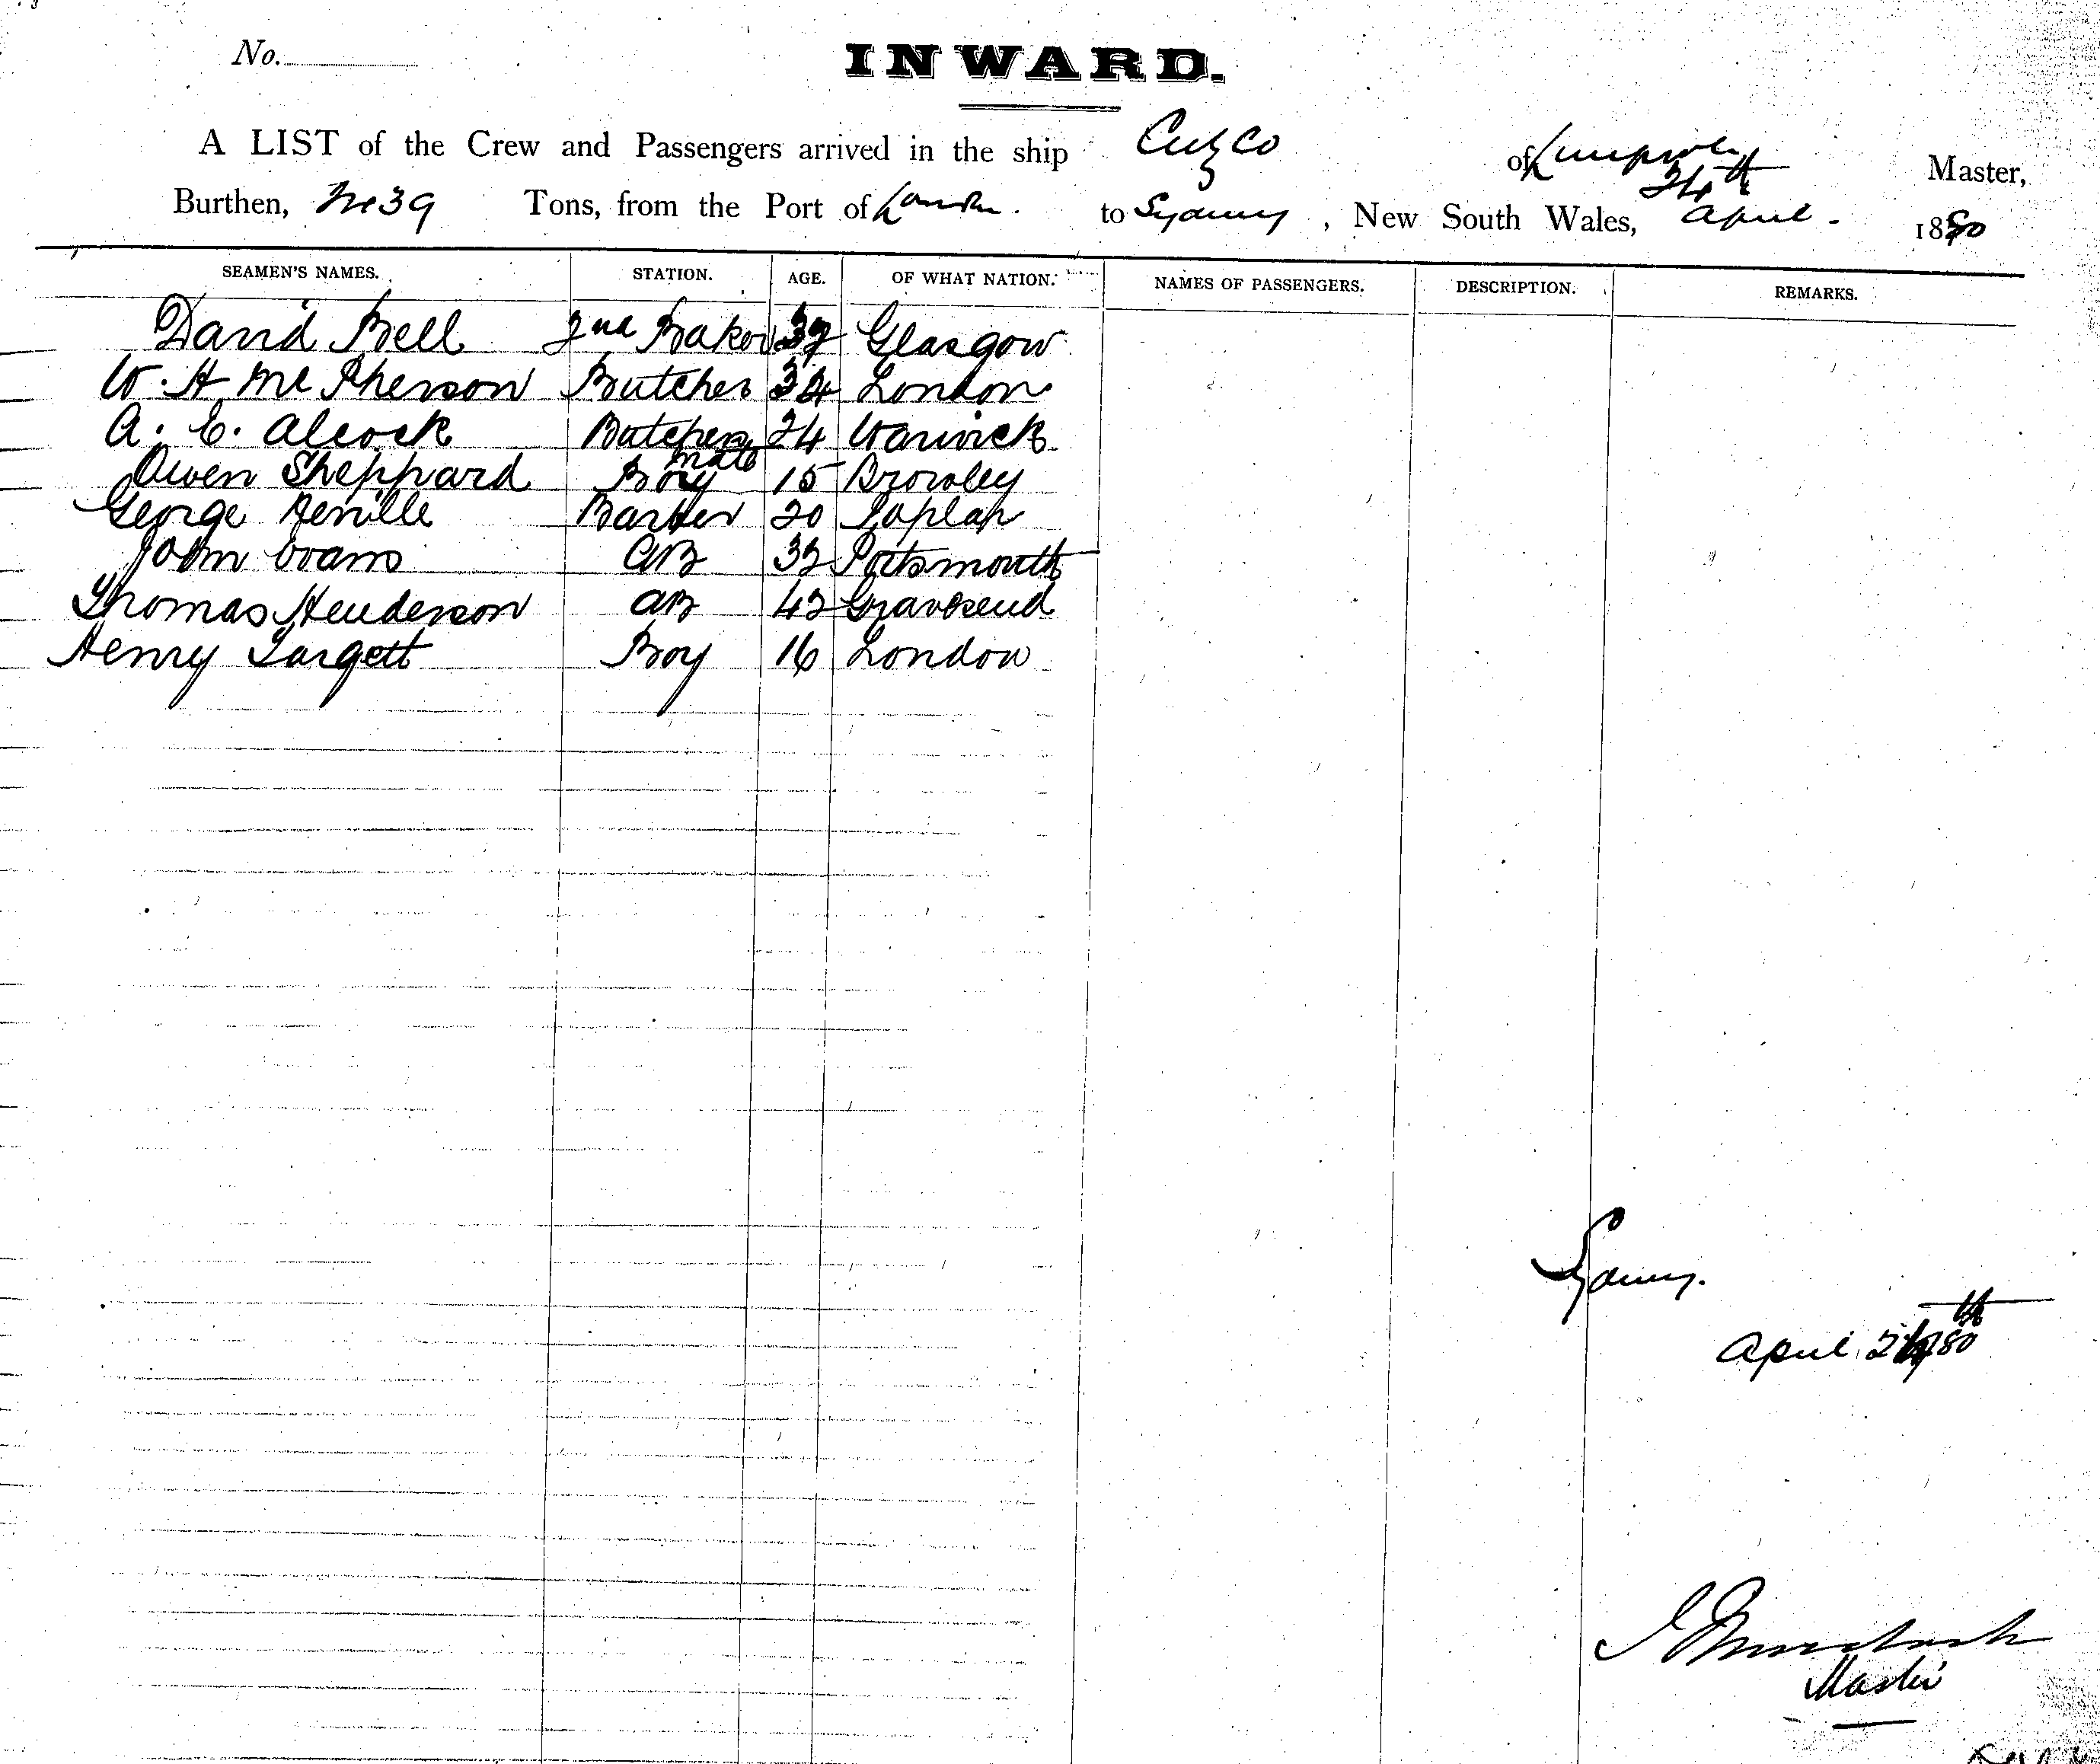 No.
INWARD.
A LIST of the Crew and Passengers arrived in the ship Cuzco of Liverpool Master,
Burthen, 2439 Tons, from the Port of London. to Sydney, New South Wales, 24th April. 1880
SEAMEN'S NAMES. STATION. AGE. OF WHAT NATION. NAMES OF PASSENGERS. DESCRIPTION. REMARKS.
David Bell 2nd Baker Glasgow
W. H. McPherson Butcher 34 London
A. E. Alcock Butchers mate 24 Warwick
Owen Sheppard Boy 15 Bromley
George Neville Barber 20 Poplar
John Evans AB 32 Portsmouth
Thomas Henderson AB 42 Gravesend
Henry Targett Boy 16 London
Sydney.
April 24th 80
J Murdoch
Master